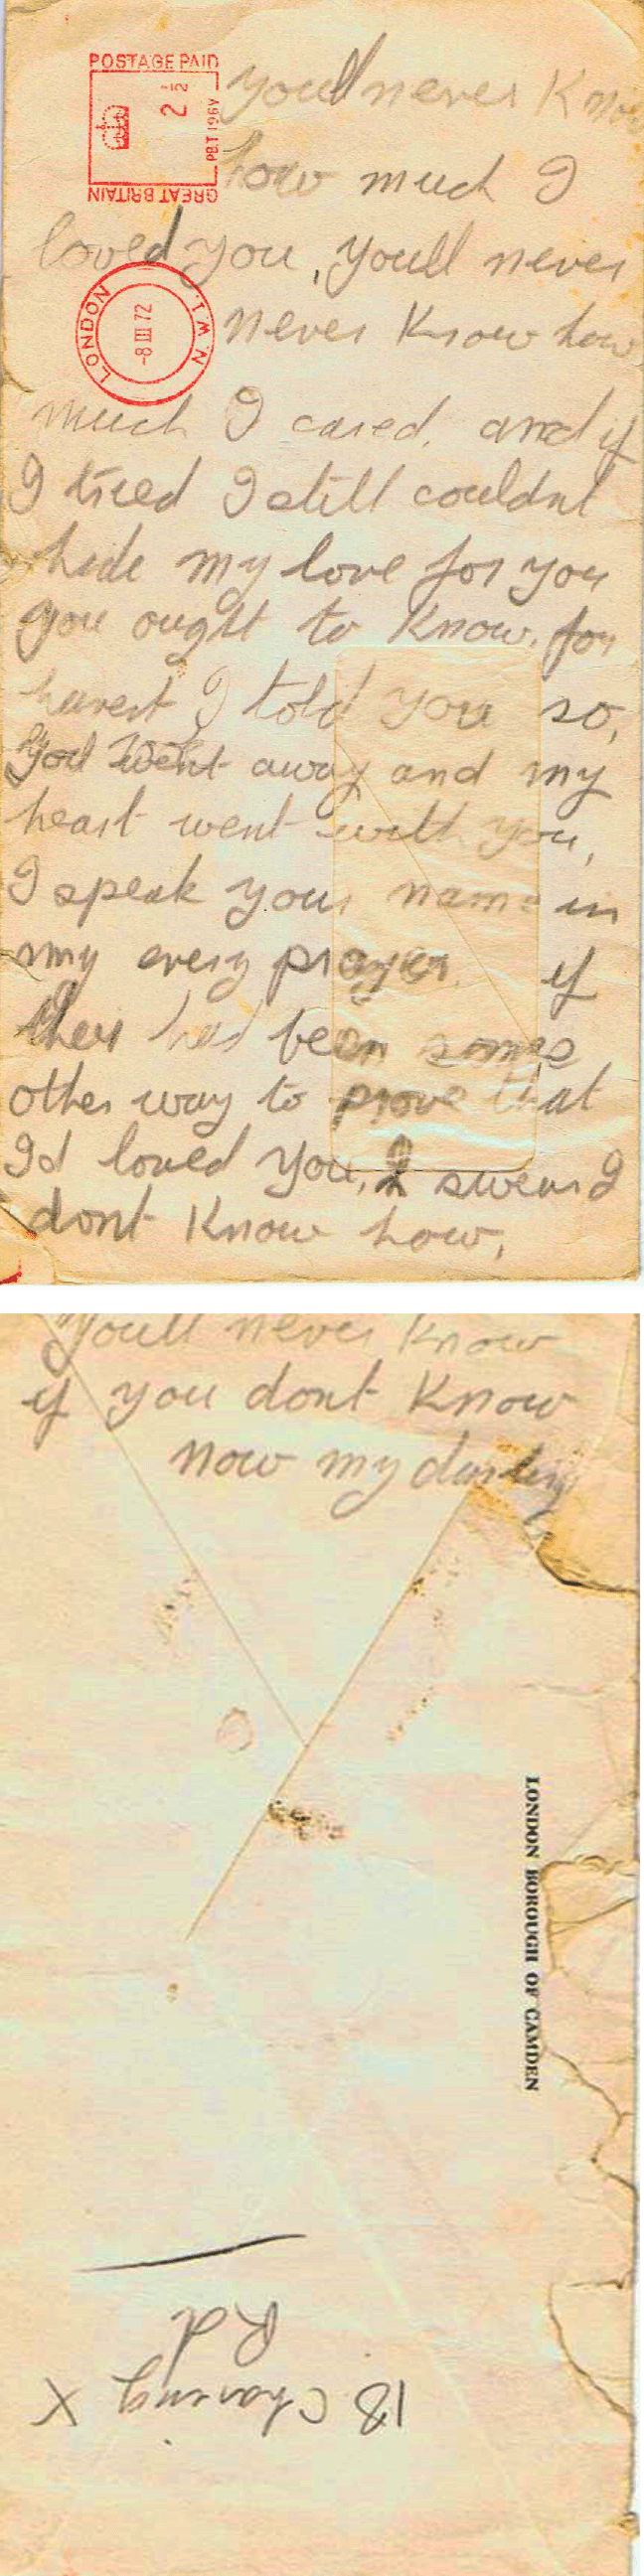 POSTAGE PAID
2 1/2
PB.T 196V
GREAT BRITAIN
LONDON N.W.1.
-8 III 72
youll never Know
how much I
loved you, youll never
never Know how
much I cared. and if
I tried I still couldnt
hide my love for you
you ought to Know, for
havent I told you so,
you went away and my
heart went with you,
I speak your name in
my every prayer. if
ther had been some
other way to prove that
Id loved you, I swear I
dont Know how,
Youll never Know
if you dont Know
now my darling
LONDON BOROUGH OF CAMDEN
18 Charing X
Rd